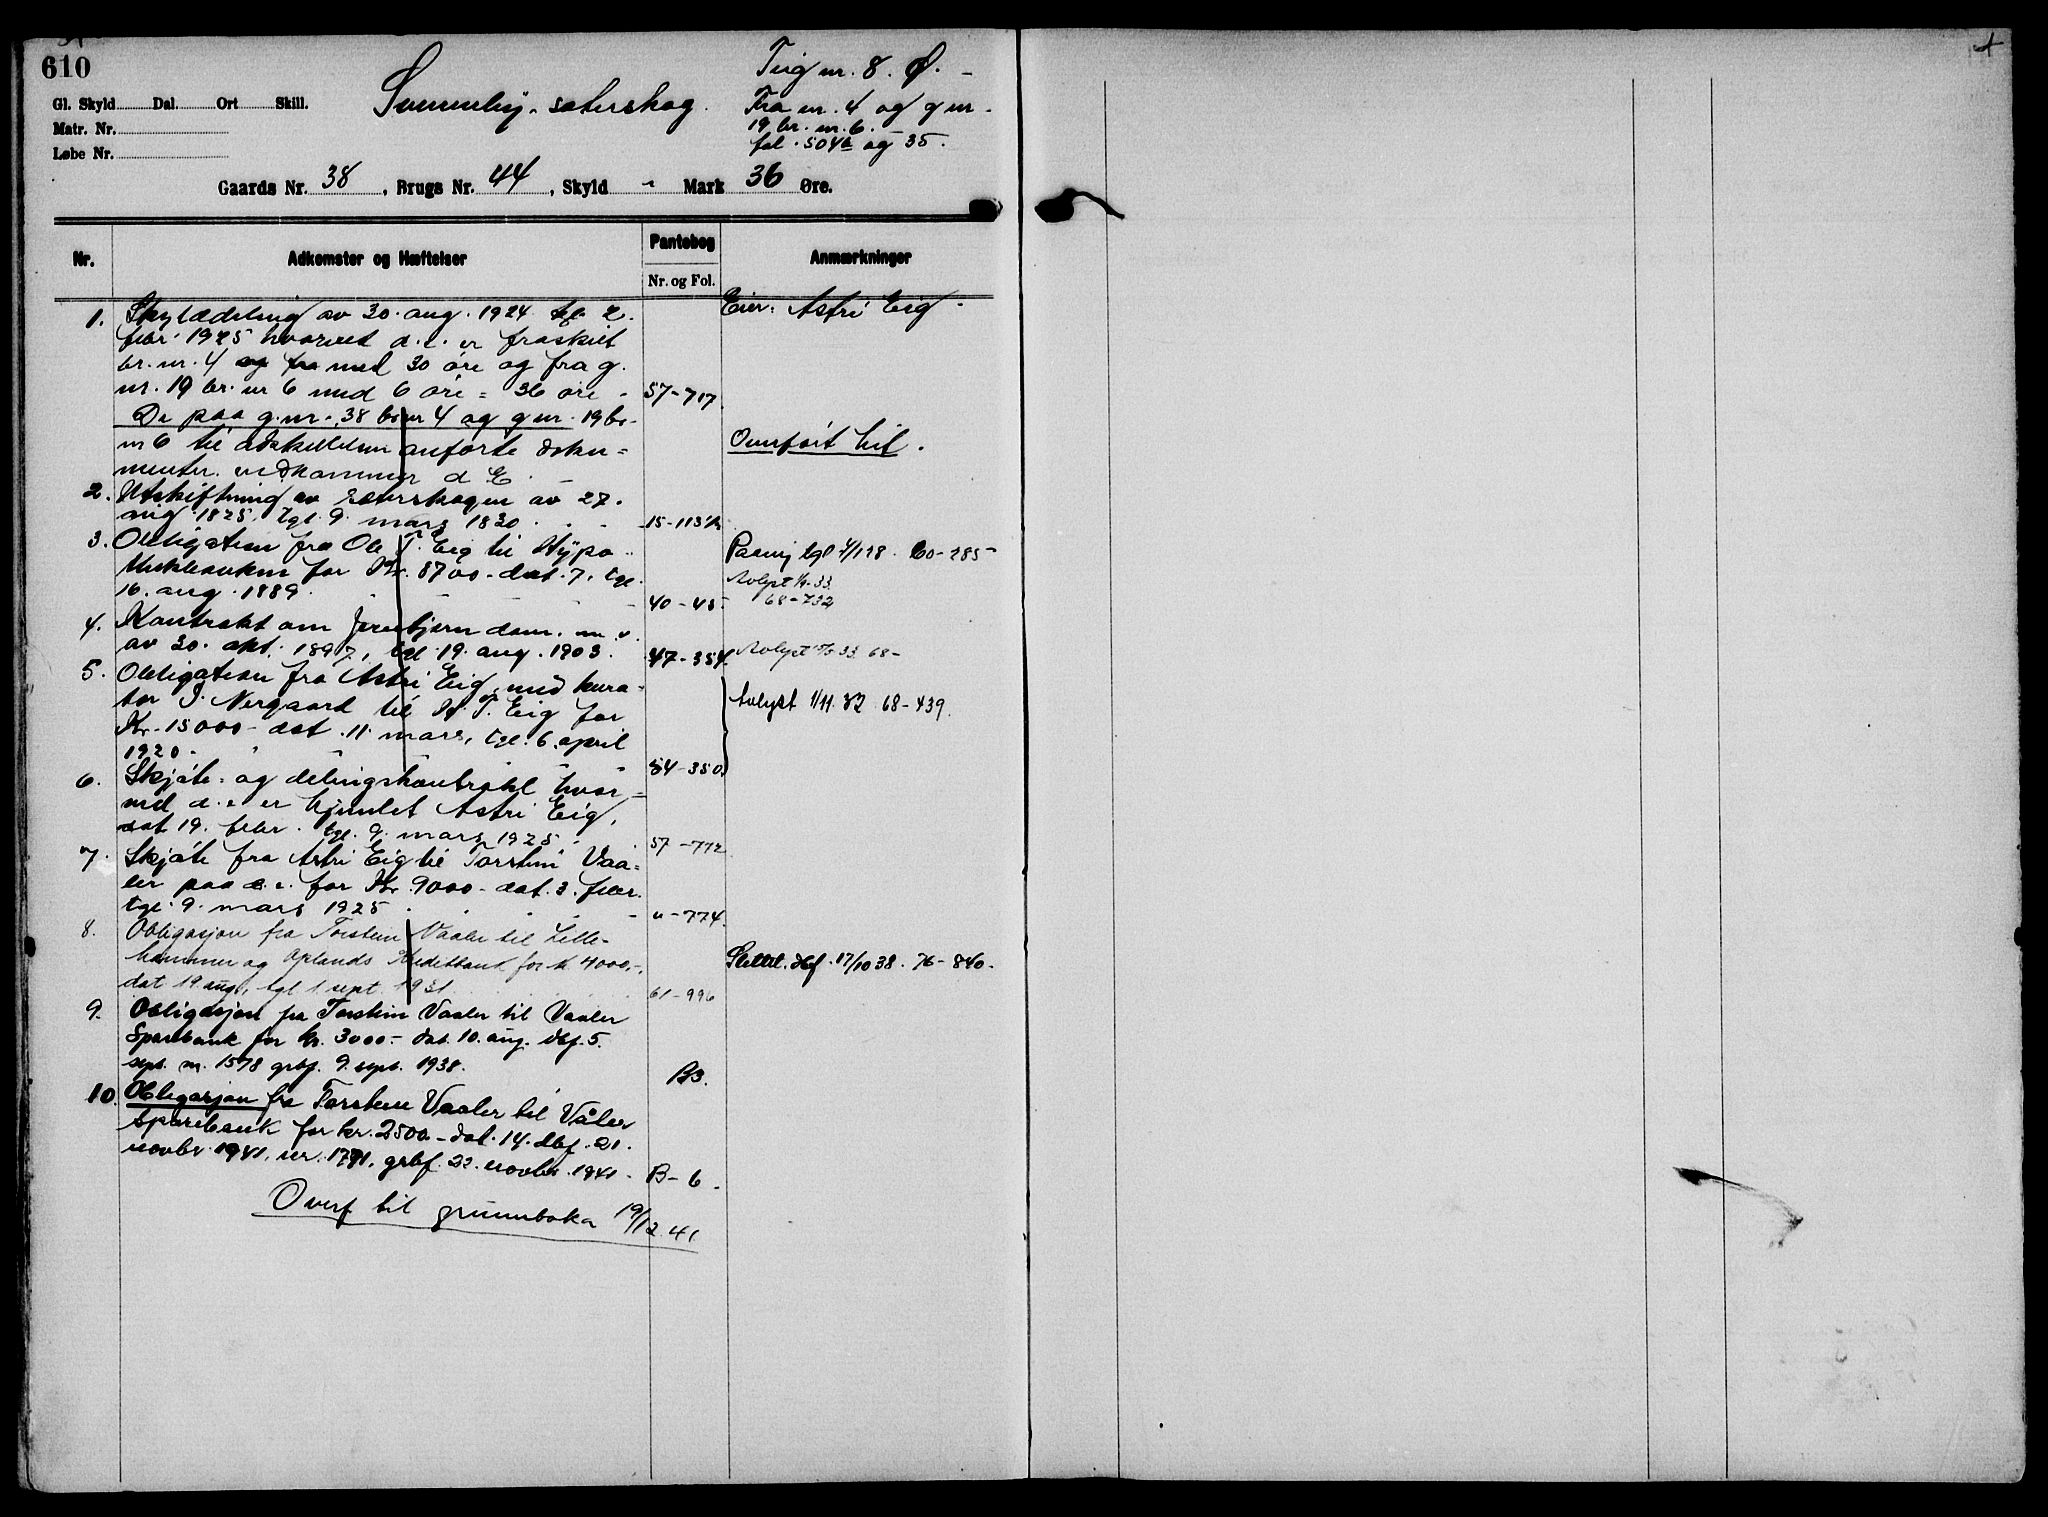 610
Teig nr. 8. Ø. -
Gl. Skyld Dal. Ort Skill.
sæterskog.
Fra nr. 4 og g nr.
Matr. Nr.
19 br. nr. 6.
Løbe Nr.
fol. 504b og 35.
Gaards Nr. 38, Brugs Nr. 44, Skyld " Mark 36 Øre.
Nr. Adkomster og Hæftelser Pantebog Anmærkninger
Nr. og Fol.
1. Skylddeling av 30. aug. 1924 tgl. 2. Eier: Astri Eig.
febr. 1925 hvorved d. e. er fraskilt
br. nr. 4 og fra med 30 øre og fra g.
nr. 19 br. nr 6 med 6 øre = 36 øre - 57-717
De paa g. nr. 38 br nr 4 og g nr. 19 br.
nr 6 til adskillelsen anførte doku= Overført hit.
menter vedkommer d E.
2. Utskiftning av sæterskogen av 27.
aug. 1825, tgl. 9. mars 1830. 15-113
3. Obligation fra Ole T. Eig til Hypo-
thekbanken for Kr. 8700- dat. 7. tgl. 60-285-
16. aug. 1889. 40-45
Avlyst 1/4-33
68-732
4. Kontrakt om Jerebjørn dam. m. v.
av 30. okt. 1897, tgl. 19. aug. 1903. 47-354 Avlyst 33 68-
5. Obligation fra Astri Eig med kura-
tor J. Nergaard til H. T. Eig for Avlyst 1/11 32 68-439.
Kr. 15000- dat. 11. mars, tgl. 6. april
1920. 54-350
6. Skjøte- og delingskontrakt hvor=
ved d. e. er hjemlet Astri Eig,
dat 19. febr. tgl. 9. mars 1925. 57-772
7. Skjøte fra Astri Eig til Torstein Vaa=
ler paa d. e. for Kr. 9000- dat. 3. febr.
tgl. 9. mars 1925 " - 774.
8. Obligasjon fra Torstein Vaaler til Lille-
hammer og Oplands Kreditbank for k 4000,-, Slettet. dbf. 17/10 38. 76-840.
dat 19 aug, tgl 1 sept 1931 61-996
9. Obligasjon fra Torstein Vaaler til Vaaler
Sparebank for kr. 3000.- dat. 10. aug. dbf. 5.
sept. nr. 1578 grbf. 9. sept. 1938. B3.
10. Obligasjon fra Torstein Vaaler til Våler
Sparebank for kr. 2500- dat. 14. dbf. 21.
novbr. 1941, nr. 1791, grbf. 22. novbr. 1941. B-6.
Overf til grunnboka 19/12 41.